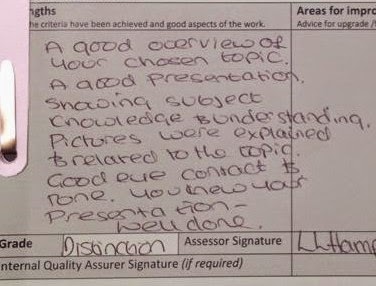 ngths
Areas for impro
he criteria have been achieved and good aspects of the work.
Advice for upgrade /
A good overview of
your chosen topic.
A good presentation.
Showing subject
knowledge & understanding.
Pictures were explained
& related to the topic.
Good eye contact &
tone. You new your
Presentation -
well done.
Grade
Distinction
Assessor Signature
nternal Quality Assurer Signature (if required)